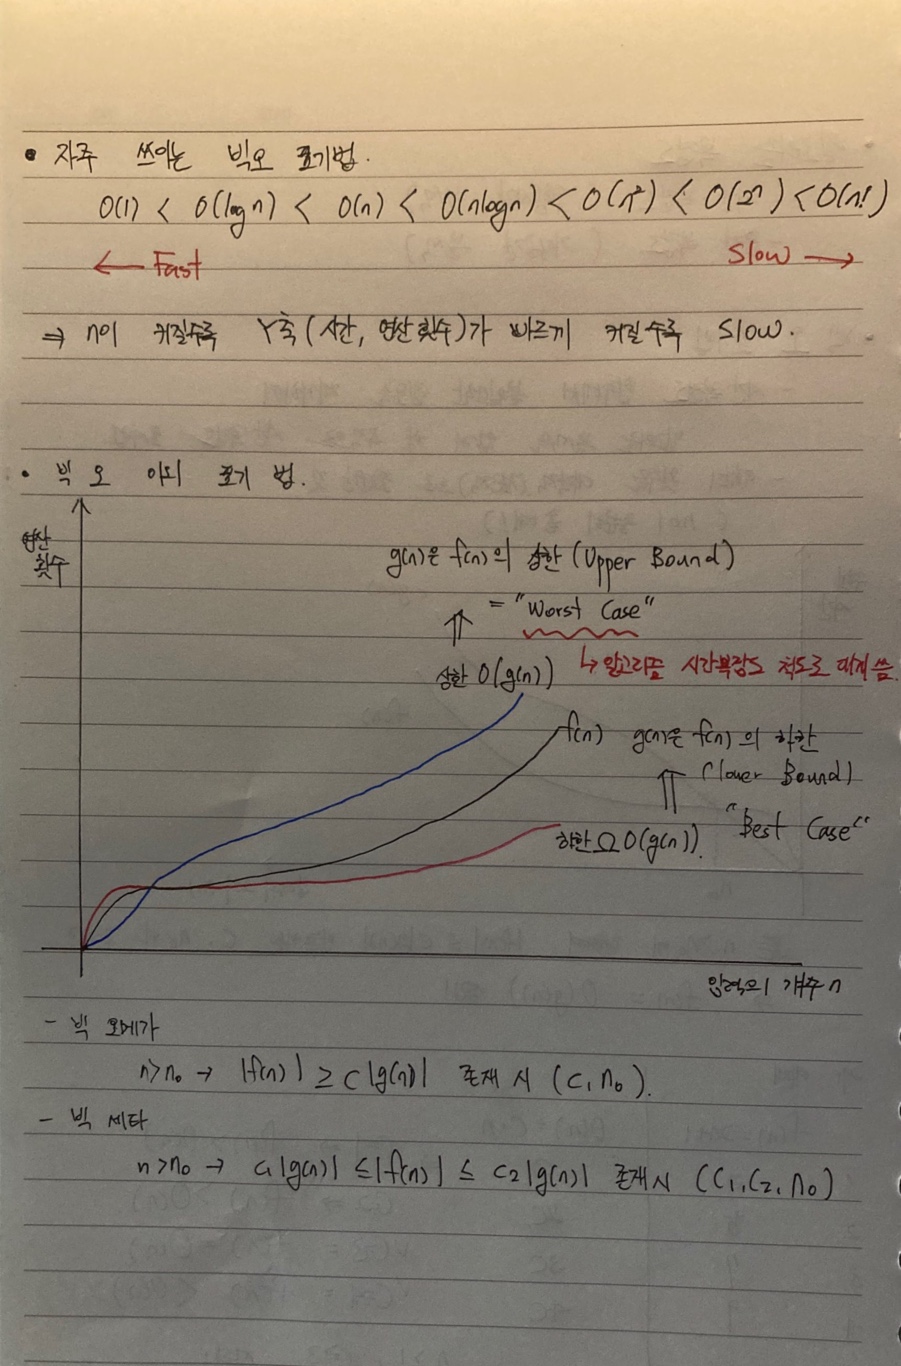 • 자주 쓰이는 빅오 표기법.
O(1) < O(log n) < O(n) < O(nlogn) < O(n²) < O(2ⁿ) < O(n!)
← Fast
Slow →
⇒ n이 커질수록 Y축(시간, 연산횟수)가 빠르게 커질수록 Slow.
• 빅 오 이외 표기 법.
연산
횟수
g(n)은 f(n)의 상한 (Upper Bound)
⇑ = "Worst Case"
상한 O(g(n))
↳ 알고리즘 시간복잡도 척도로 대게 씀.
f(n)
g(n)은 f(n)의 하한
⇑ (lower Bound)
"Best Case"
하한 Ω O(g(n)).
입력의 개수 n
- 빅 오메가
n>n₀ → |f(n)| ≥ C|g(n)| 존재 시 (C, n₀).
- 빅 세타
n>n₀ → C₁|g(n)| ≤ |f(n)| ≤ C₂|g(n)| 존재시 (C₁, C₂, n₀)